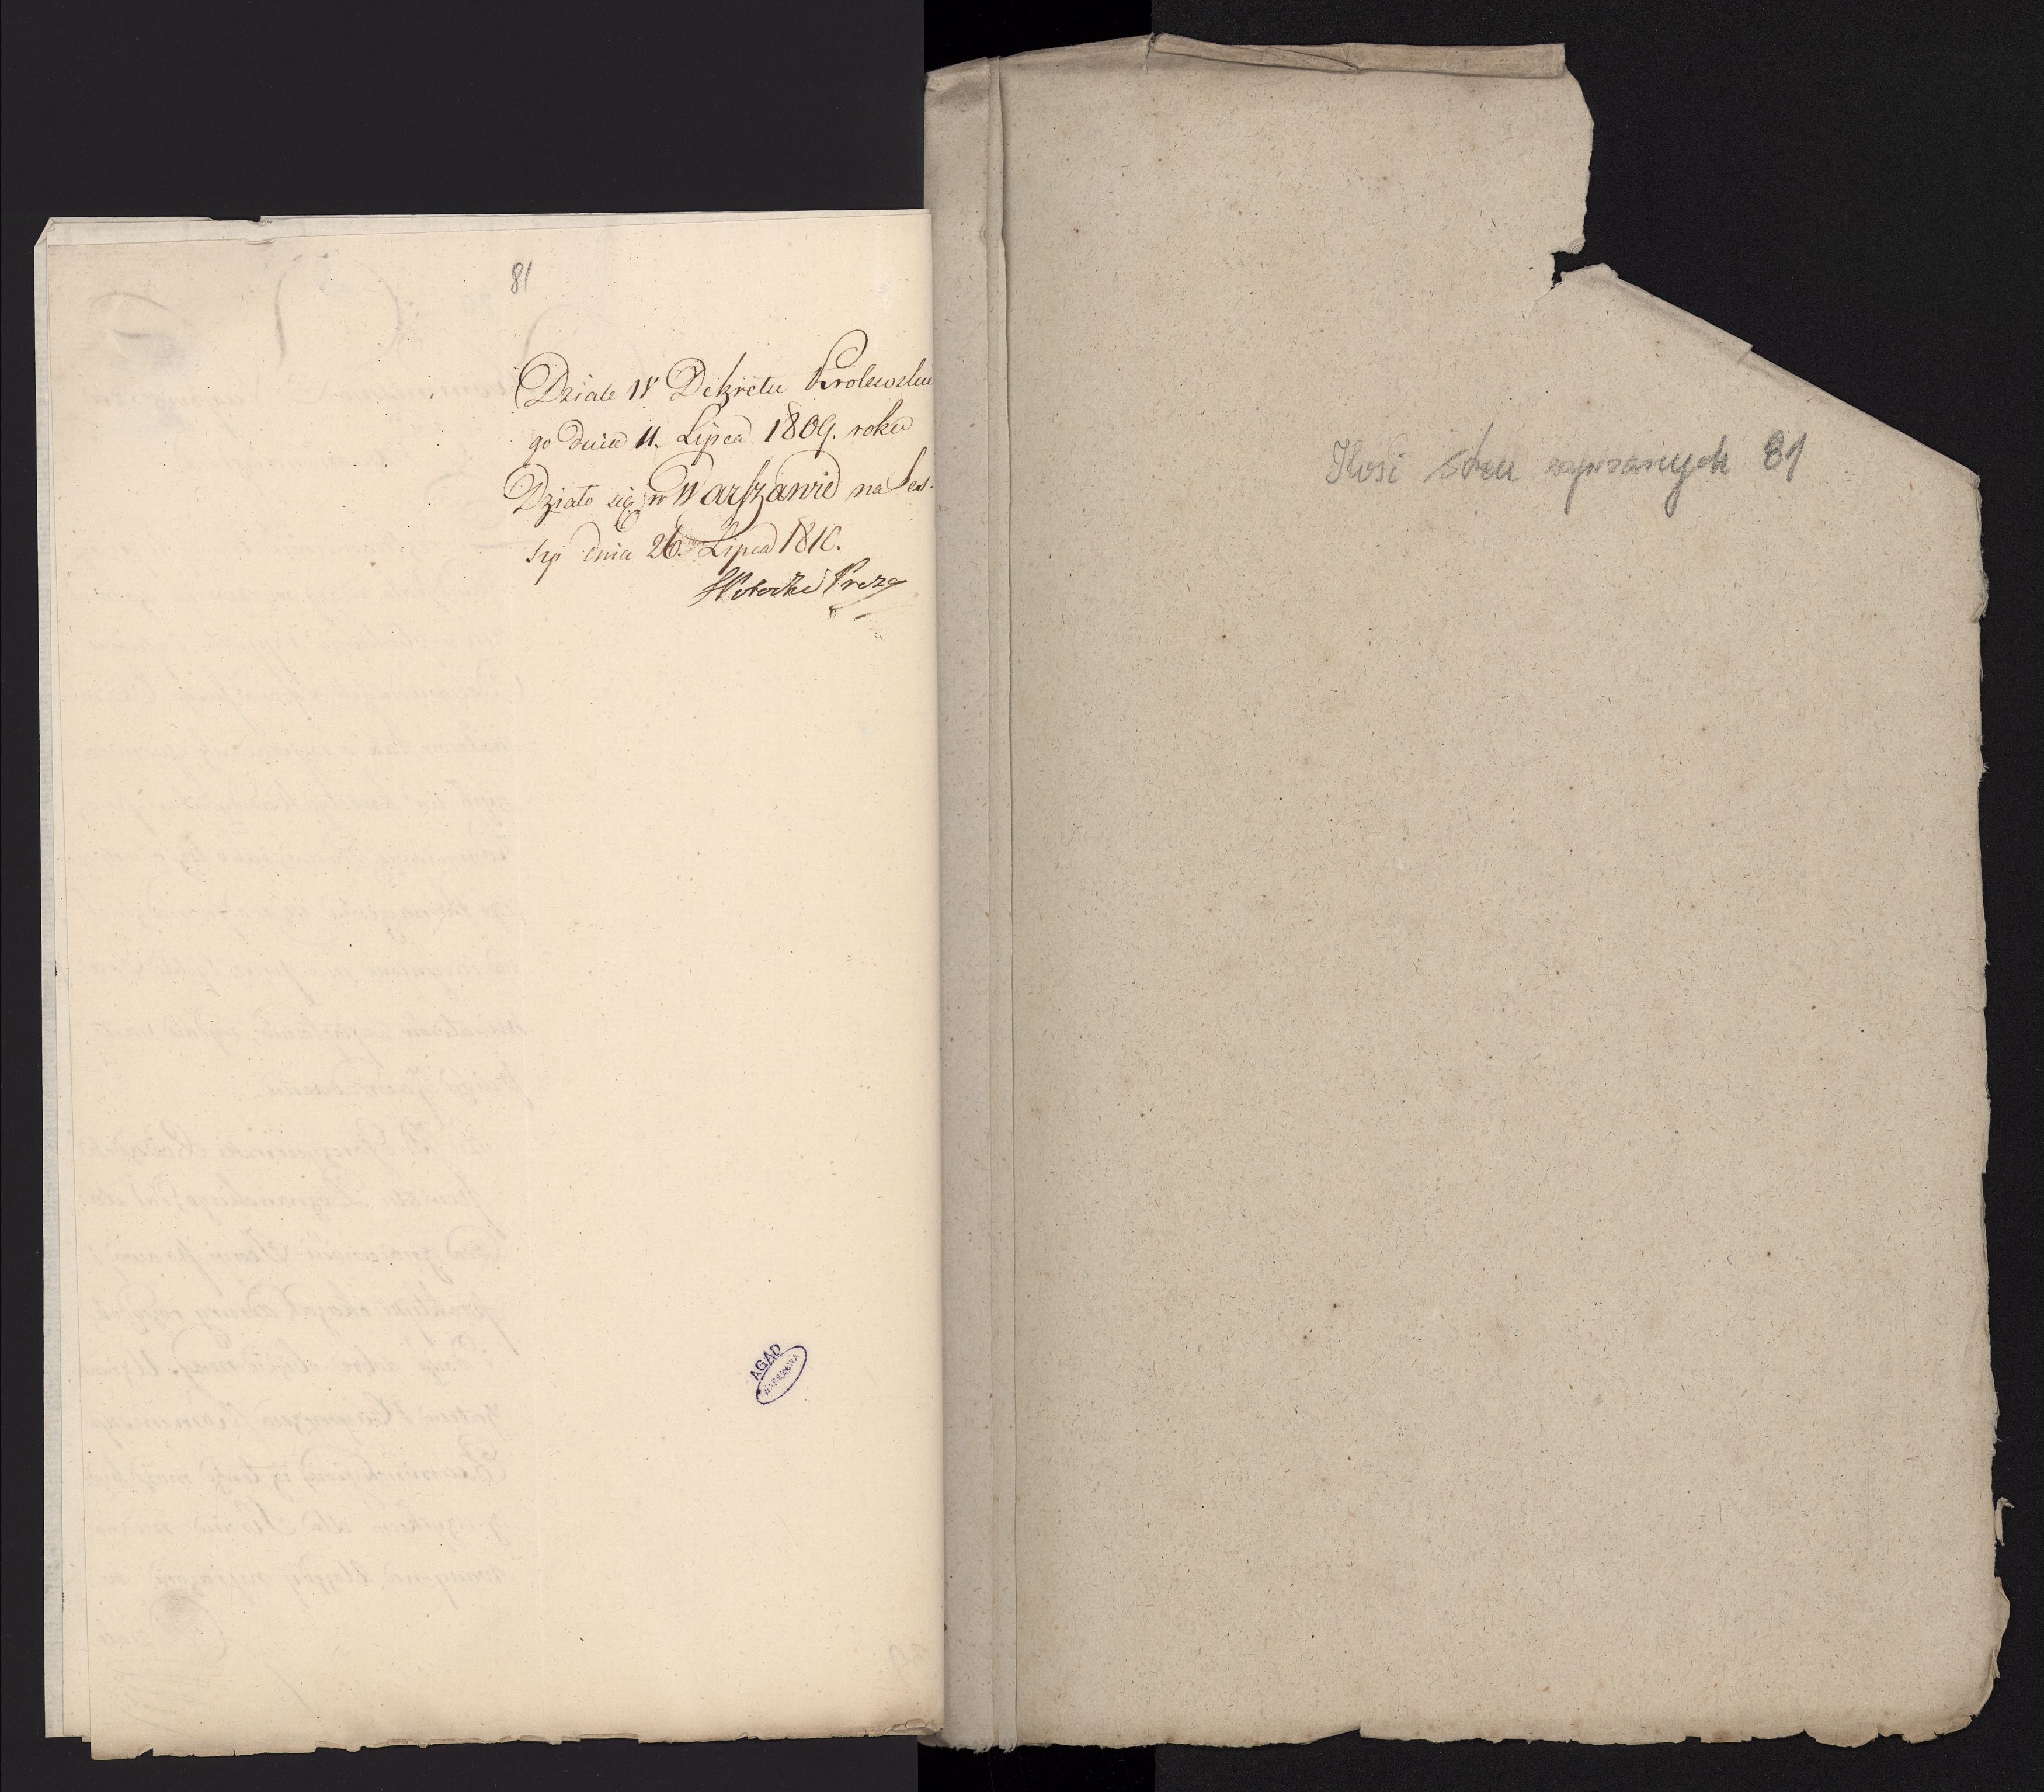 81
Dziale IV Dekretu Krolewskie
go dnia 11. Lipca 1809. roku
Działo się w Warszawie na Ses-
syi dnia 26. Lipca 1810.
Potocki Prezes
AGAD
WARSZAWA
Ilość stron zapisanych 81